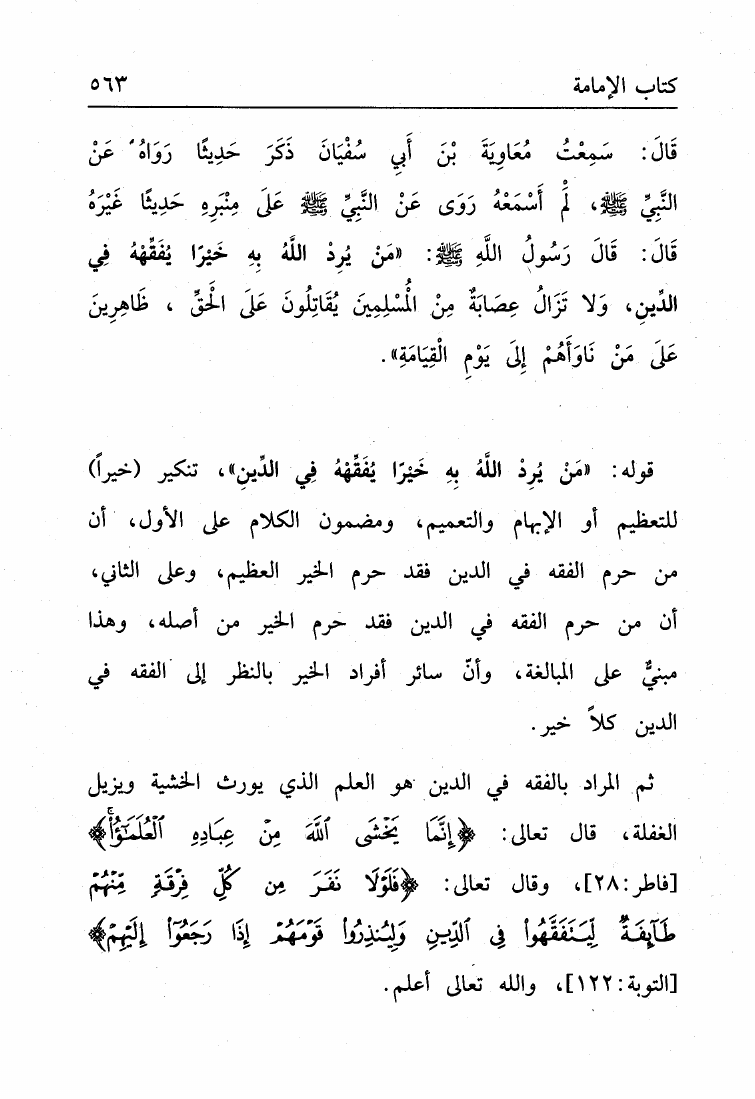 كتاب الإمامة ٥٦٣
قَالَ: سَمِعْتُ مُعَاوِيَةَ بْنَ أَبِي سُفْيَانَ ذَكَرَ حَدِيثًا رَوَاهُ عَنْ
النَّبِيِّ ﷺ، لَمْ أَسْمَعْهُ رَوَى عَنْ النَّبِيِّ ﷺ عَلَى مِنْبَرِهِ حَدِيثًا غَيْرَهُ
قَالَ: قَالَ رَسُولُ اللَّهِ ﷺ: «مَنْ يُرِدْ اللَّهُ بِهِ خَيْرًا يُفَقِّهْهُ فِي
الدِّينِ، وَلَا تَزَالُ عِصَابَةٌ مِنْ الْمُسْلِمِينَ يُقَاتِلُونَ عَلَى الْحَقِّ ، ظَاهِرِينَ
عَلَى مَنْ نَاوَأَهُمْ إِلَى يَوْمِ الْقِيَامَةِ».
قوله: «مَنْ يُرِدْ اللَّهُ بِهِ خَيْرًا يُفَقِّهْهُ فِي الدِّينِ»، تنكير (خيراً)
للتعظيم أو الإبهام والتعميم، ومضمون الكلام على الأول، أن
من حرم الفقه في الدين فقد حرم الخير العظيم، وعلى الثاني،
أن من حرم الفقه في الدين فقد حرم الخير من أصله، وهذا
مبنيٌّ على المبالغة، وأنّ سائر أفراد الخير بالنظر إلى الفقه في
الدين كلاً خير.
ثم المراد بالفقه في الدين هو العلم الذي يورث الخشية ويزيل
الغفلة، قال تعالى: ﴿إِنَّمَا يَخْشَى ٱللَّهَ مِنْ عِبَادِهِ ٱلْعُلَمَٰٓؤُا۟ۚ﴾
[فاطر:٢٨]، وقال تعالى: ﴿فَلَوْلَا نَفَرَ مِن كُلِّ فِرْقَةٍ مِّنْهُمْ
طَآئِفَةٌ لِّيَتَفَقَّهُوا۟ فِى ٱلدِّينِ وَلِيُنذِرُوا۟ قَوْمَهُمْ إِذَا رَجَعُوٓا۟ إِلَيْهِمْ﴾
[التوبة:١٢٢]، والله تعالى أعلم.